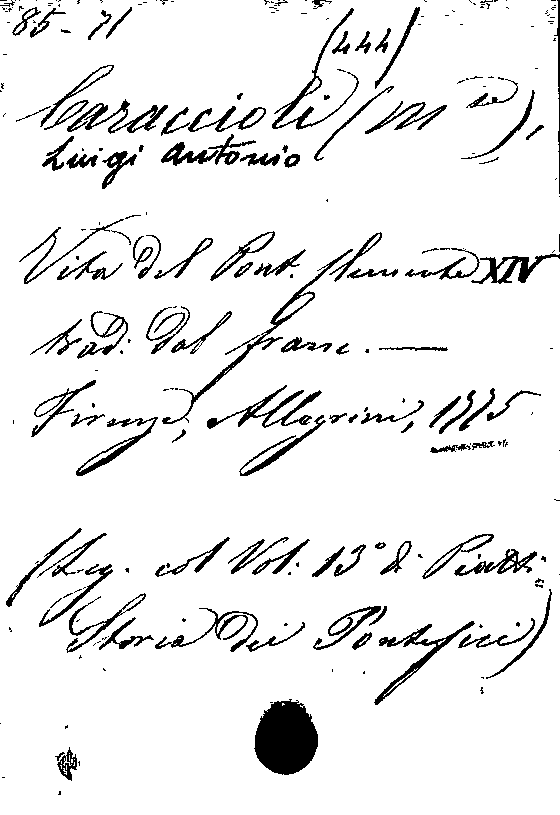 85-71
(444)
Caraccioli (Mse),
Luigi Antonio
Vita del Pont. Clemente XIV
trad: dal franc. —
Firenze, Allegrini, 1775
(Leg. col Vol: 13° di Piatti
Storia dei Pontefici)